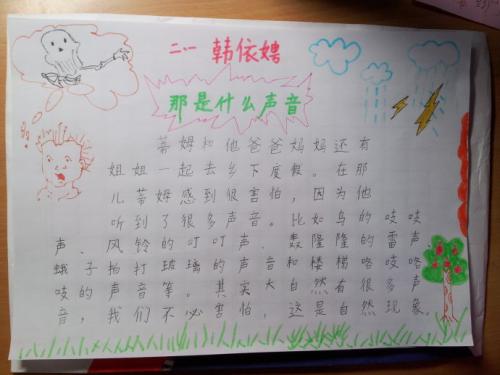 二一 韩依娉
那是什么声音
蒂姆和他爸爸妈妈还有
姐姐一起去乡下度假。在那
儿蒂姆感到很害怕，因为他
听到了很多声音。比如鸟的吱吱
声、风铃的叮叮声、轰隆隆的雷声
蛾子拍打玻璃的声音和楼梯咯吱咯
吱的声音等。其实大自然有很多声
音，我们不必害怕，这是自然现象。